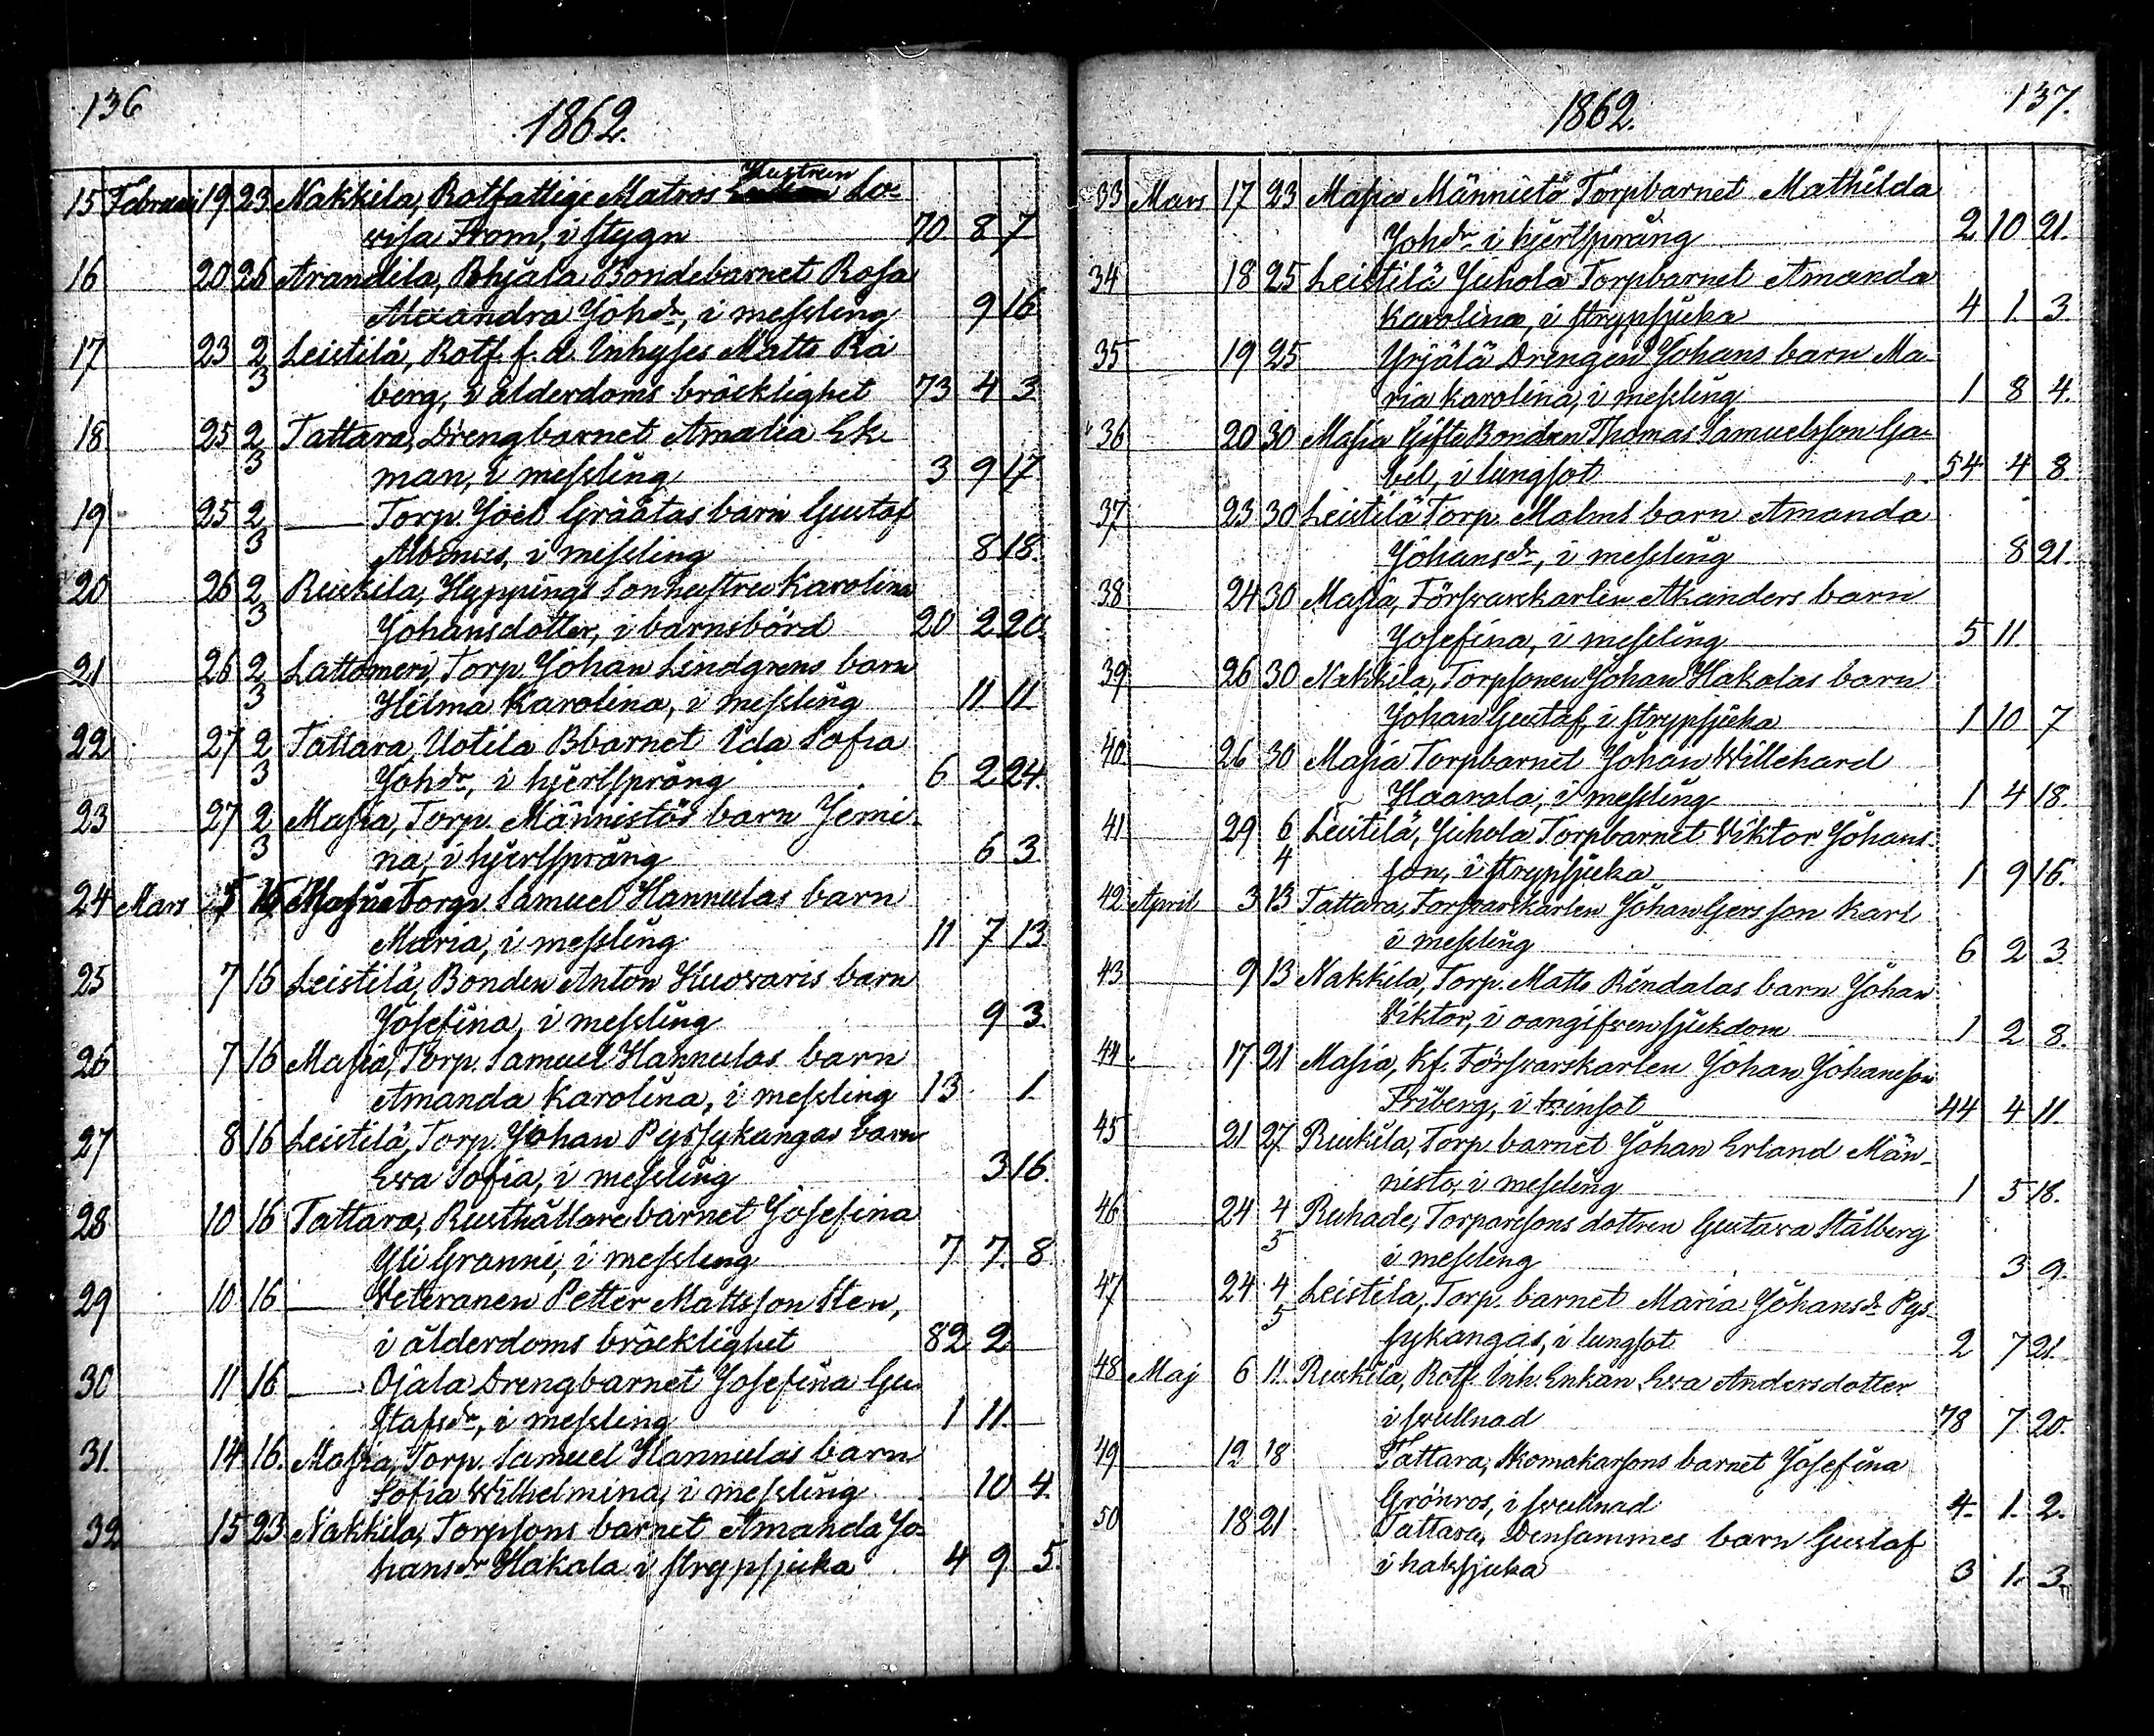 136
1862.
Hustrun
15 Februari 19 23 Nakkila, Rotfattige Matros Lo-
visa From, i stygn 70 8 7
16 20 26 Arandila, Pohjala Bondebarnet Rosa
Alexandra Johdr, i messling 9 16
17 23 2/3 Leistilä, Rotf. f. d. Inhyses Matts Rå
berg, i ålderdoms bräcklighet 73 4 3
18 25 2/3 Tattara, Drengbarnet Amalia Ek-
man, i messling 3 9 17
19 25 2/3 — Torp. Joel Gråätas barn Gustaf
Albinus, i messling 8 18.
20 26 2/3 Ruskila, Hyppings Sonhustru Karolina
Johansdotter, i barnsbörd 20 2 20.
21 26 2/3 Lattomeri, Torp. Johan Lindgrens barn
Hilma Karolina, i messling 11 11
22 27 2/3 Tattara, Uotila Bbarnet Ida Sofia
Johdr, i hjertsprång 6 2 24.
23 27 2/3 Masia, Torp. Männistös barn Jemi-
na, i hjertsprång 6 3.
24 Mars 5 16 Masia Torp. Samuel Hannulas barn
Maria, i messling 11 7 13
25 7 16 Leistilä, Bonden Anton Kuovaris barn
Josefina, i messling 9 3.
26 7 16 Masia, Torp. Samuel Hannulas barn
Amanda Karolina, i messling 13 1.
27 8 16 Leistilä, Torp. Johan Pyssykangas barn
Eva Sofia, i messling 3 16.
28 10 16 Tattara, Rusthållare barnet Josefina
Yli Granni, i messling 7 7 8
29 10 16 — Veteranen Petter Mattsson Sten,
i ålderdoms bräcklighet 82 2
30 11 16 — Ojala Drengbarnet Josefina Gu-
stafsdr, i messling 1 11. —
31. 14 16. Masia, Torp. Samuel Hannulas barn
Sofia Wilhelmina, i messling 10 4.
32 15 23 Nakkila, Torpsons barnet Amanda Jo-
hansdr Hakala i strypsjuka 4 9 5.
137.
1862.
33 Mars 17 23 Masia Männistö Torpbarnet Mathilda
Johdr i hjertsprång 2 10 21.
34 18 25 Leistilä Juhola Torpbarnet Amanda
Karolina, i strypsjuka 4 1. 3.
35 19 25 Yrjälä Drengen Johans barn Ma-
ria Karolina, i messling 1 8 4.
36 20 30 Masia Gifte Bonden Thomas Samuelsson Ga-
bel, i lungsot 54 4 8.
37 23 30 Leistilä Torp. Malms barn Amanda
Johansdr, i messling 8 21.
38 24 30 Masia, Försvarskarlen Akanders barn
Josefina, i messling 5 11.
39 26 30 Nakkila, Torpsonen Johan Hakalas barn
Johan Gustaf, i strypsjuka 1 10 7
40. 26 30 Masia Torpbarnet Johan Willehard
Haarala, i messling 1 4 18.
41 29 6/4 Leistilä, Juhola Torpbarnet Viktor Johans-
son, i strypsjuka 1 9 16.
42 April 3 13 Tattara, Forsvarskarlen Johan Gersson Karl
i messling 6 2 3.
43 9 13 Nakkila, Torp. Matts Rendalas barn Johan
Viktor, i oangifven sjukdom 1 2 8.
44. 17 21 Masia, Kf. Försvarskarlen Johan Johansson
Friberg, i tvinsot 44 4 11.
45 21 27 Ruskila, Torp. barnet Johan Erland Män-
nistö, i messling 1 5 18.
46 24 4/5 Ruhade, Torparesons dottren Gustava Stålberg
i messling 3 9.
47 24 4/5 Leistila, Torp. barnet Maria Johansdr Pys-
sykangas, i lungsot 2 7 21.
48 Maj 6 11. Ruskila, Rotf. Inh. Enkan Eva Andersdotter
i svullnad 78 7 20.
49 12 18 Tattara, Skomakarsons barnet Josefina
Grönros, i svullnad 4. 1. 2.
50 18 21. Tattara, Densammes barn Gustaf
i halssjuka 3 1. 3.